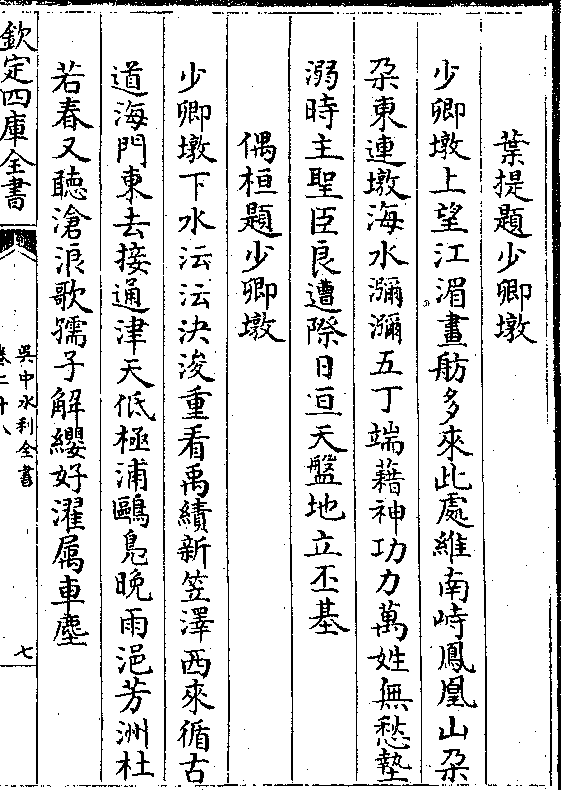 葉提題少卿墩
少卿墩上望江湄畫舫多來此處維南峙鳳凰山朶
朶東連墩海水瀰瀰五丁端藉神功力萬姓無愁墊
溺時主聖臣良遭際日亘天盤地立丕基
偶桓題少卿墩
少卿墩下水沄沄決浚重看禹績新笠澤西來循古
道海門東去接通津天低極浦鷗鳬晚雨浥芳洲杜
若春又聽滄浪歌孺子解纓好濯屬車塵
欽定四庫全書
吳中水利全書
卷二十八
七